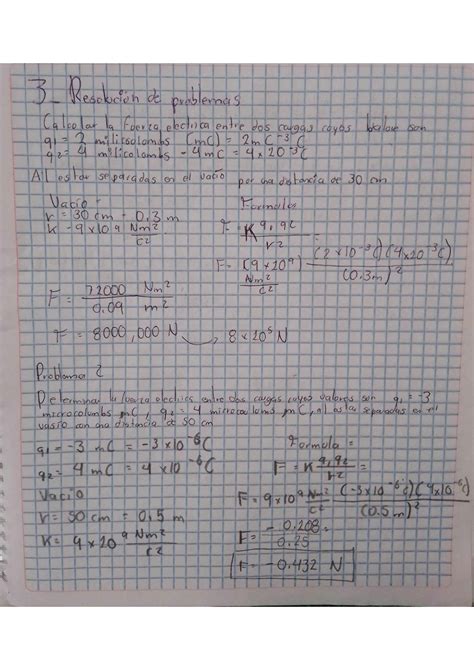 3_ Resolución de problemas
Calcular la fuerza electrica entre dos cargas cuyos valore son
q1 = 2 milicolombs (mC) = 2mC -3 C
q2 = 4 milicolombs - 4mC = 4x10-3C
Al estar separadas en el vacio por una distancia de 30 cm
Vacio -
r = 30 cm - 0.3 m
K - 9x10 9 Nm2/C2
Formula
F = K q1 q2 / r2
F = (9x109) Nm2/C2 (2x10-3C)(4x10-3C) / (0.3m)2
F = 72000 Nm2 / 0.09 m2
F = 8000,000 N → 8x105N
Problema 2
Determinar la fuerza electrica entre dos cargas cuyos valores son q1 = -3
microcolumbs mC, q2 = 4 microcolumbs mC, al estar separadas en el
vasio con una distancia de 50 cm
q1 = -3 mC = -3x10-6C
q2 = 4 mC = 4x10-6C
Vacio
r = 50 cm = 0.5 m
K = 9x10 9 Nm2/C2
Formula =
F = K q1 q2 / r2 =
F = 9x109 Nm2/C2 (-3x10-6C)(4x10-6C) / (0.5m)2
F = - 0.208 / 0.25 =
F = -0.432 N